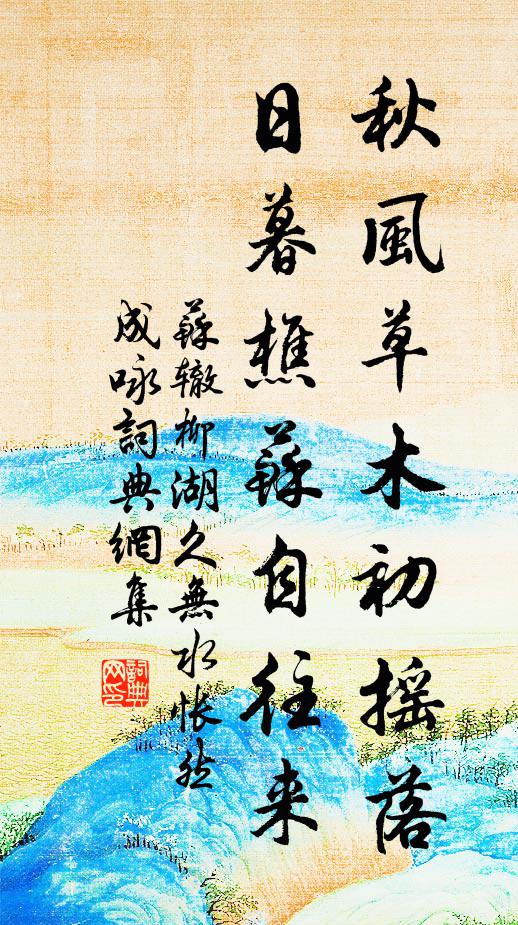 秋風草木初摇落
日暮樵蘇自往来
蘇辙柳湖久無水怅然
成咏詞典網集
詞典网印